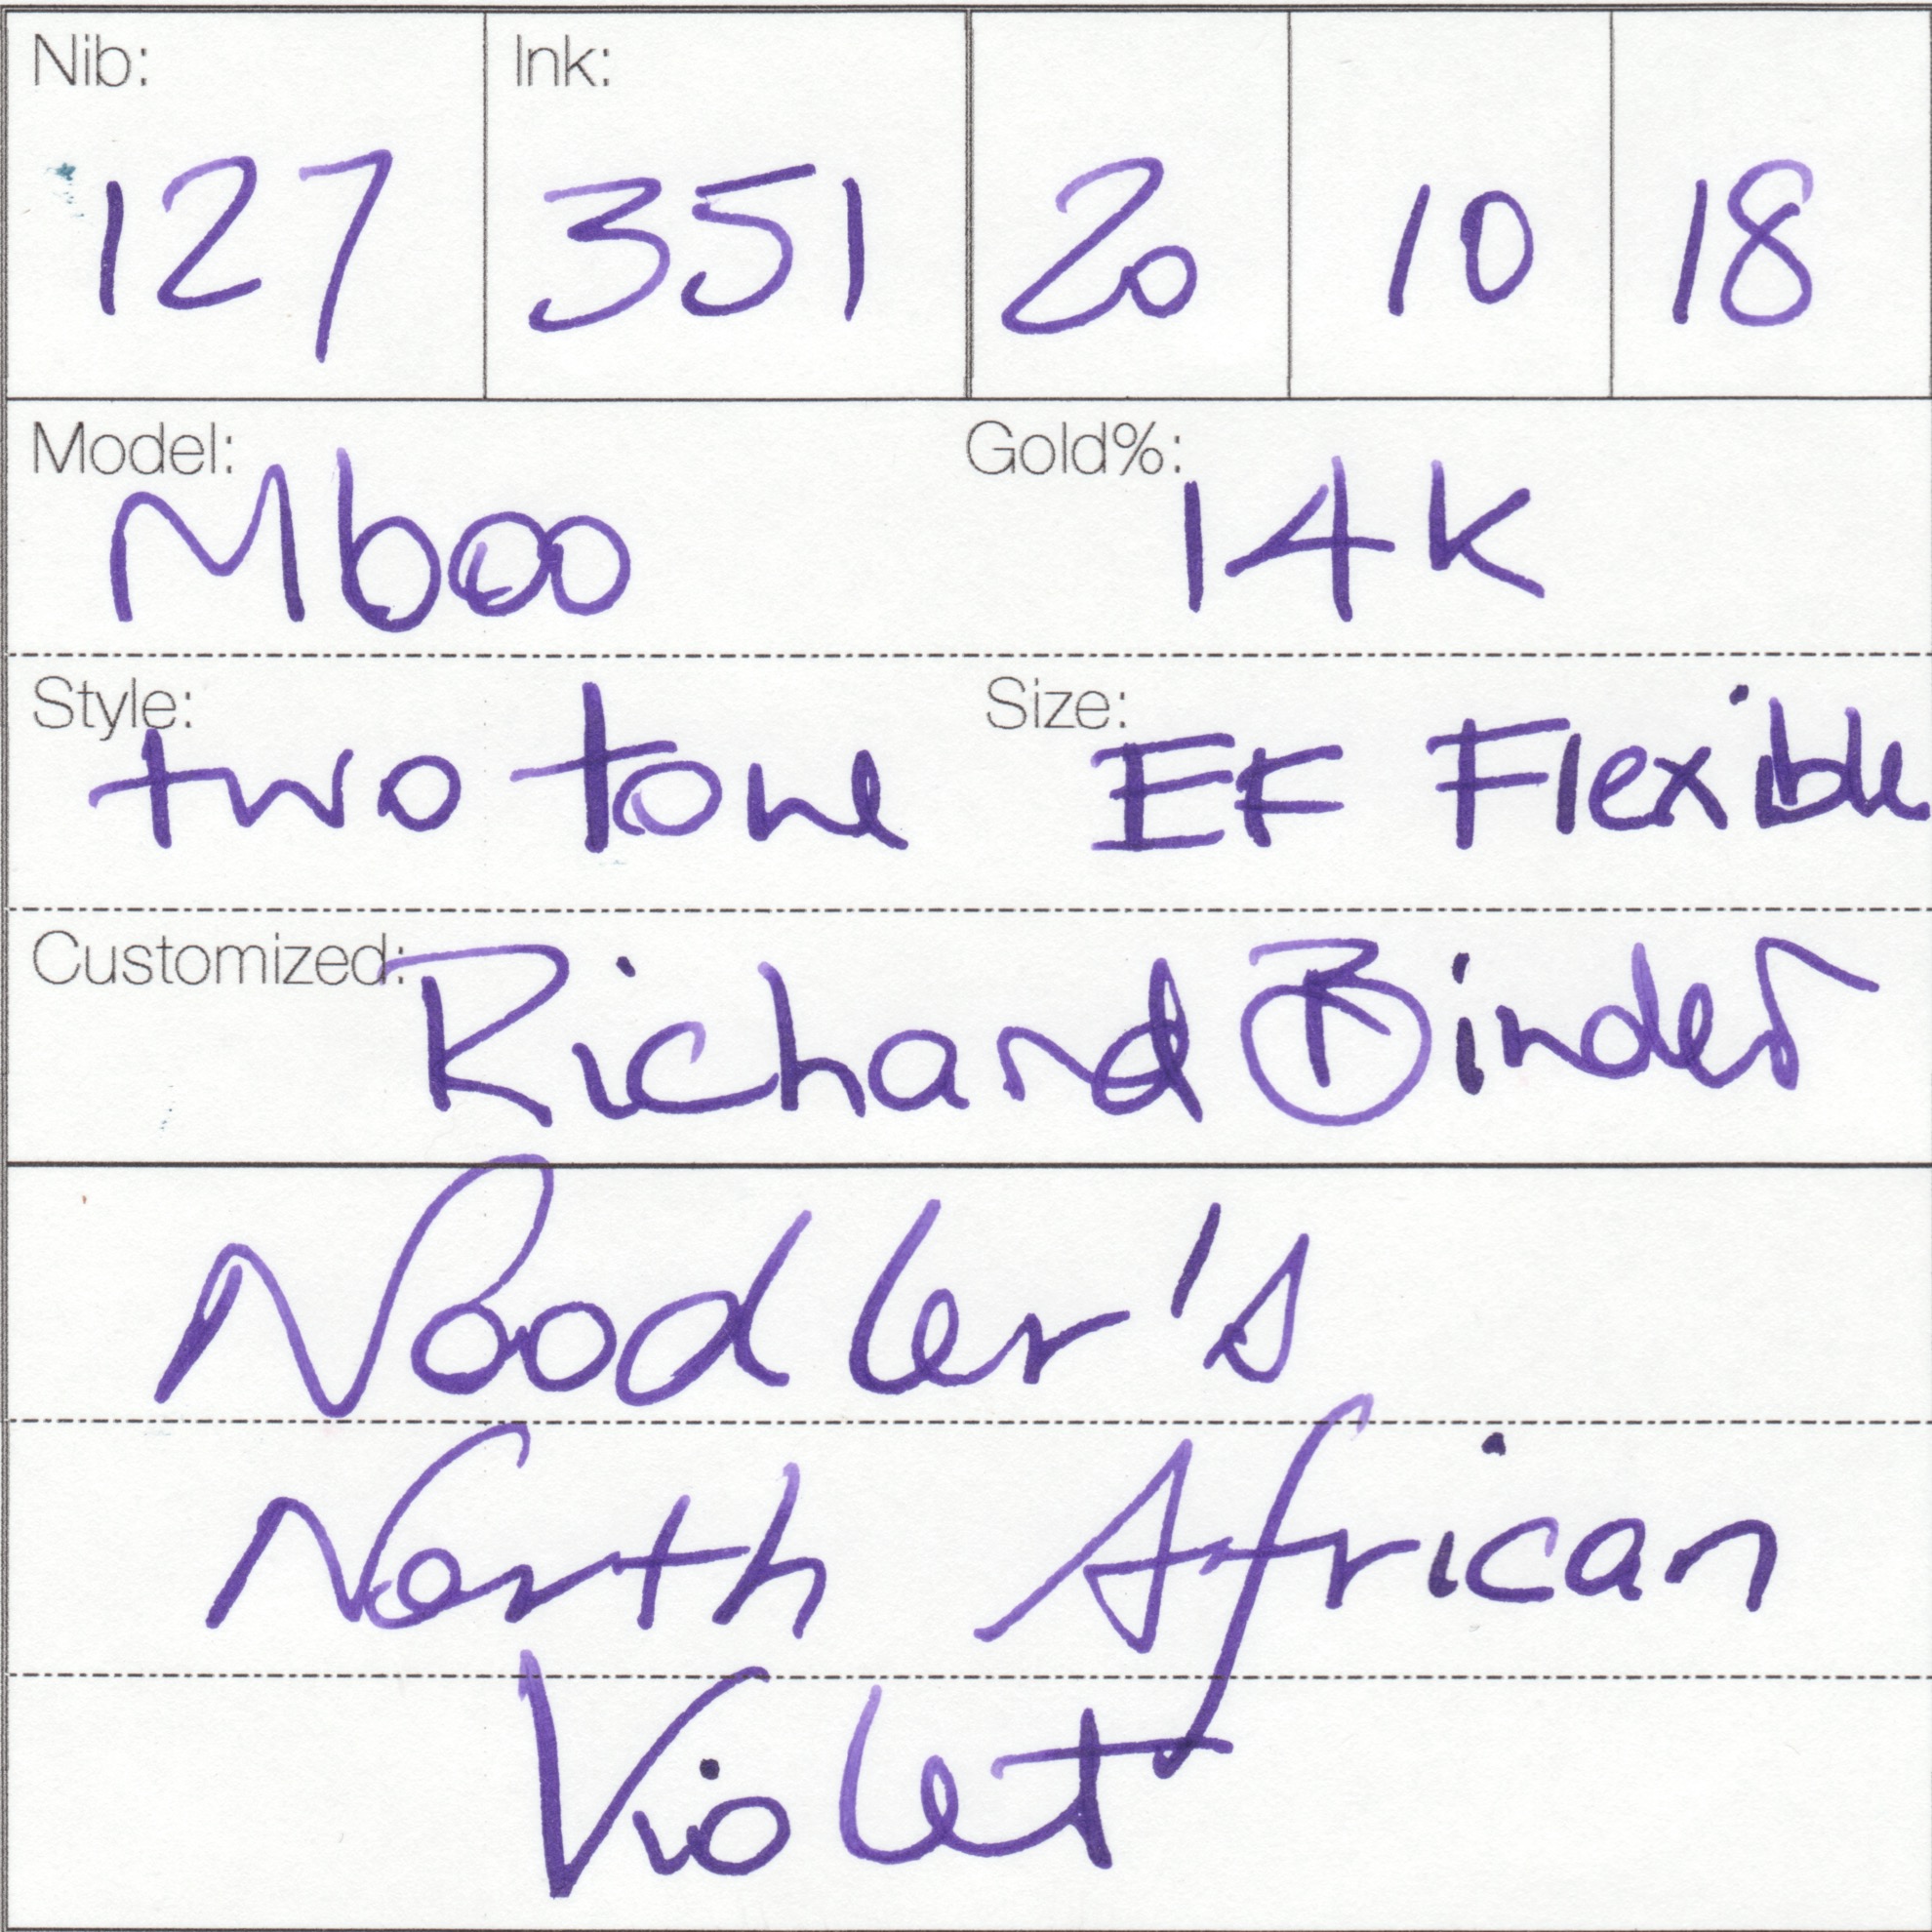 Nib: Ink:
127 351 20 10 18
Model: M600 Gold%: 14K
Style: two tone Size: EF Flexible
Customized: Richard Binder
Noodler's
North African
Violet